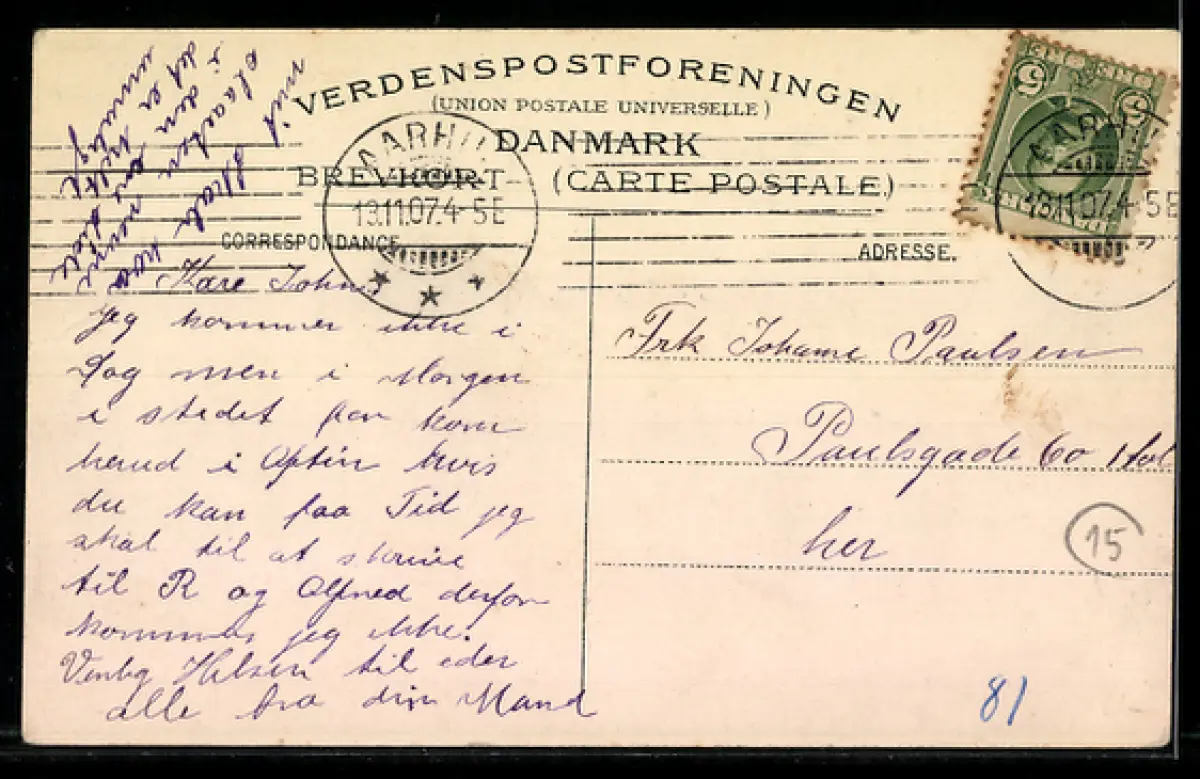 VERDENSPOSTFORENINGEN
(UNION POSTALE UNIVERSELLE)
DANMARK
BREVKORT (CARTE POSTALE)
CORRESPONDANCE.
ADRESSE.
AARHU
13.11.07. 4-5E
AARH
13.11.07. 4-5E
5
Kære Johne
jeg kommer ikke i
Dag men i Morgen
i stedet for kom
herud i Aften hvis
du kan faa Tid jeg
skal til at skrive
til R og Alfred derfor
kommer jeg ikke.
Venlig Hilsen til eder
alle fra din Mand
Frk Johanne Paulsen
Paulsgade 60 1 Sal
her
15
81
mit
i den
det er helt
umuligt